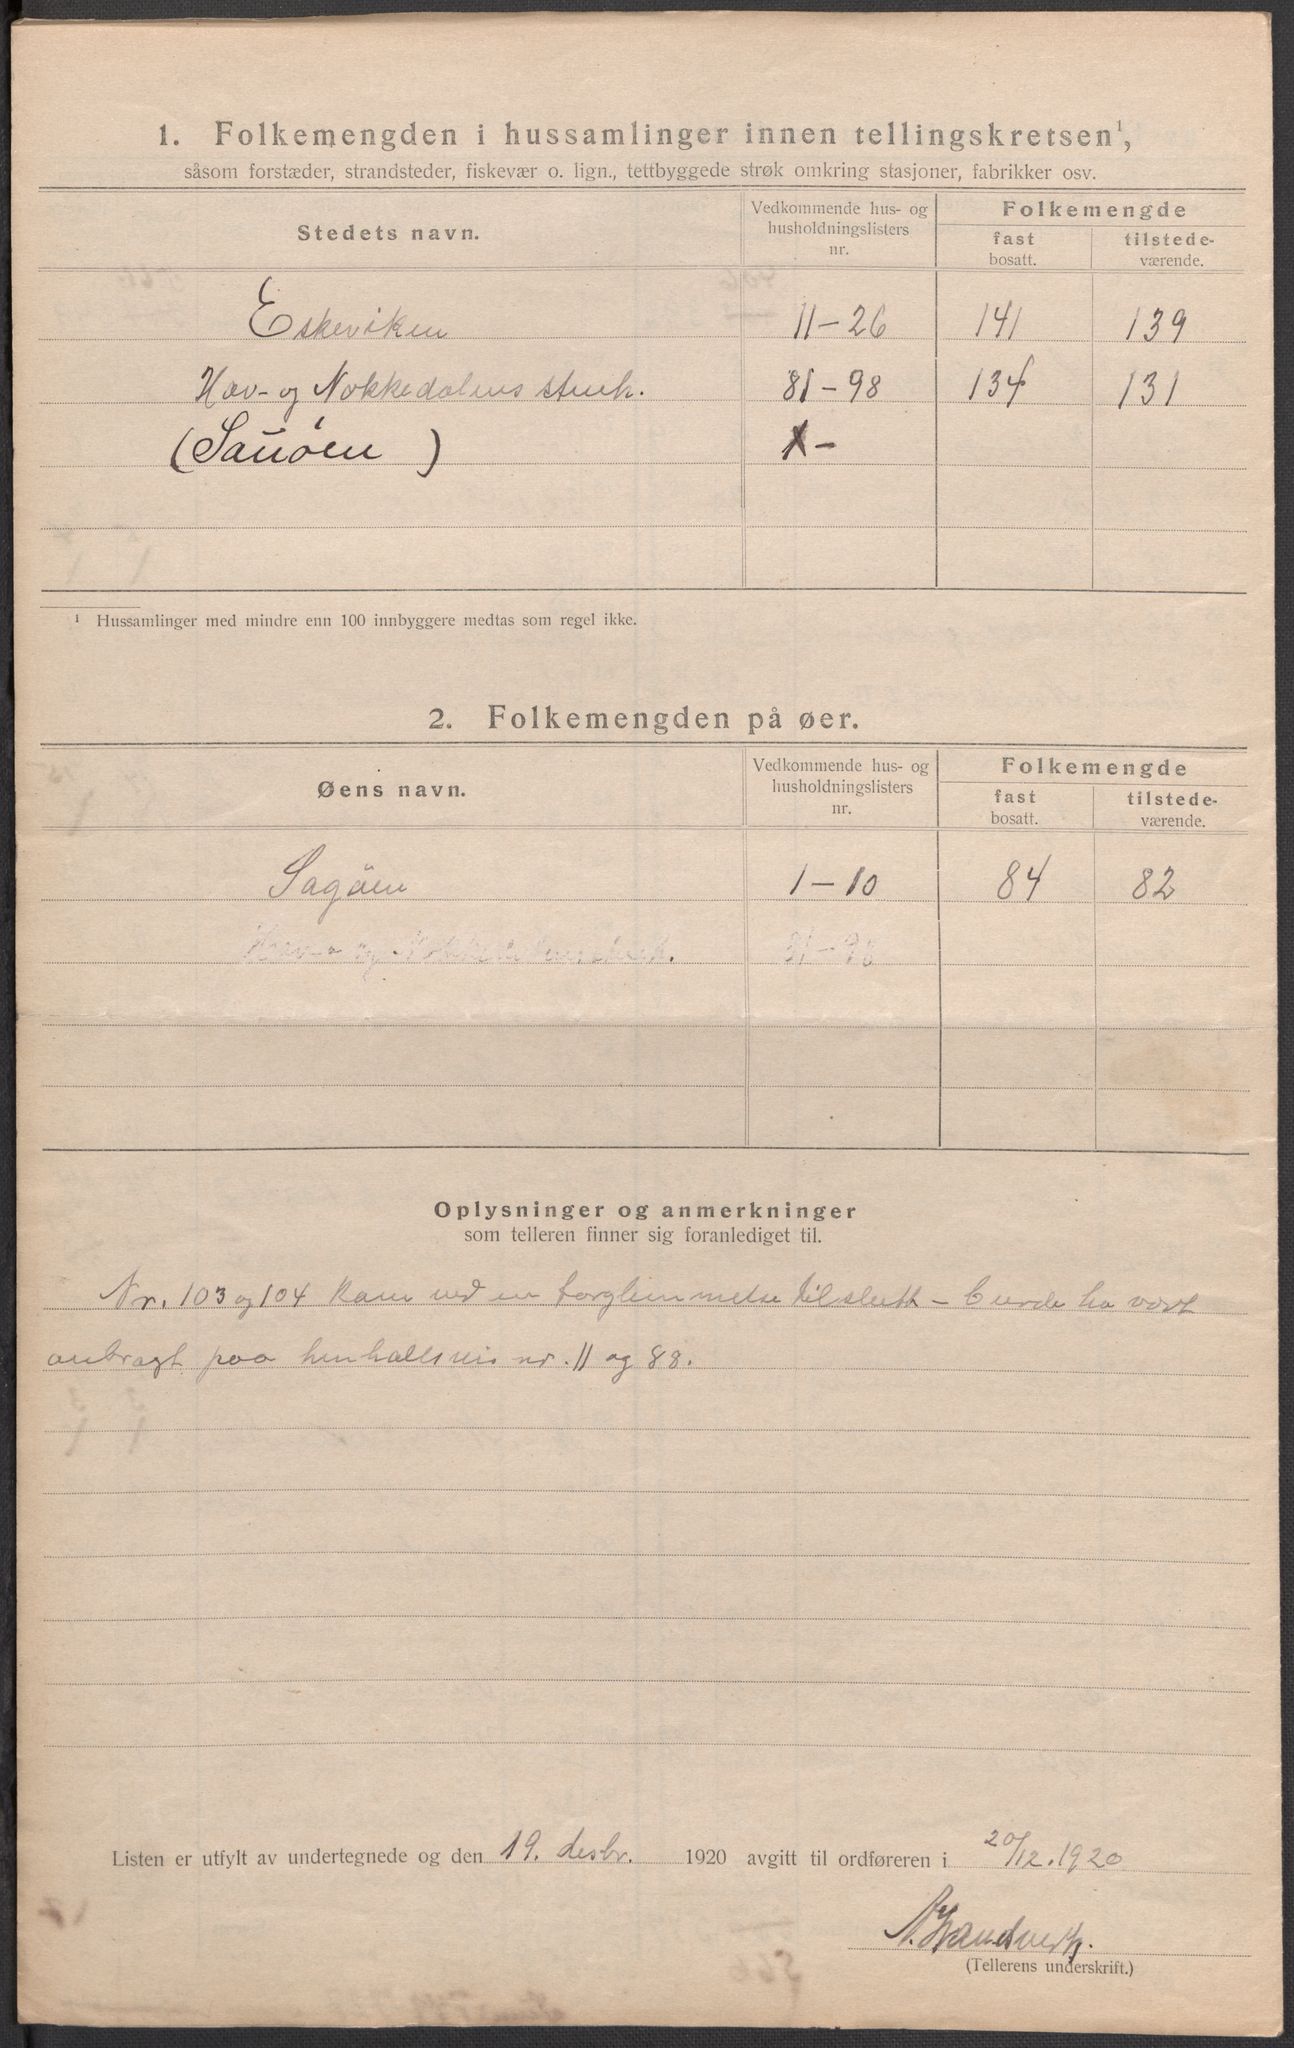 1. Folkemengden i hussamlinger innen tellingskretsen¹,
såsom forstæder, strandsteder, fiskevær o. lign., tettbyggede strøk omkring stasjoner, fabrikker osv.
Stedets navn. Vedkommende hus- og husholdningslisters nr. Folkemengde
fast bosatt. tilstede-værende.
Eskeviken 11-26 141 139
Hav- og Nokkedalens struk. 81-98 134 131
(Sauöen) X-
¹ Hussamlinger med mindre enn 100 innbyggere medtas som regel ikke.
2. Folkemengden på øer.
Øens navn. Vedkommende hus- og husholdningslisters nr. Folkemengde
fast bosatt. tilstede-værende.
Sagöen 1-10 84 82
Hav- og Nokkedalens struk. 81-98
Oplysninger og anmerkninger
som telleren finner sig foranlediget til.
Nr. 103 og 104 kom ved en forglemmelse tilslutt - burde ha vort
anbragt paa henholdsvis nr. 11 og 88.
Listen er utfylt av undertegnede og den 19. desbr. 1920 avgitt til ordføreren i 20/12.1920
(Tellerens underskrift.)